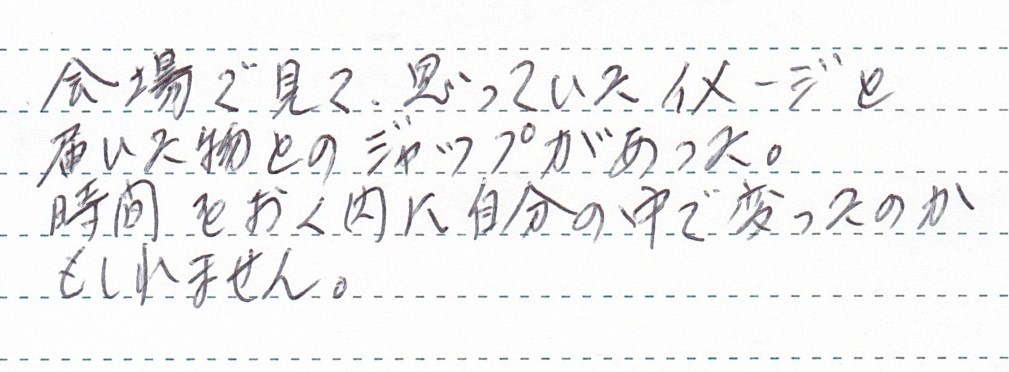 会場で見て、思っていたイメージと
届いた物とのジャップがあった。
時間をおく内に自分の中で変ったのか
もしれません。